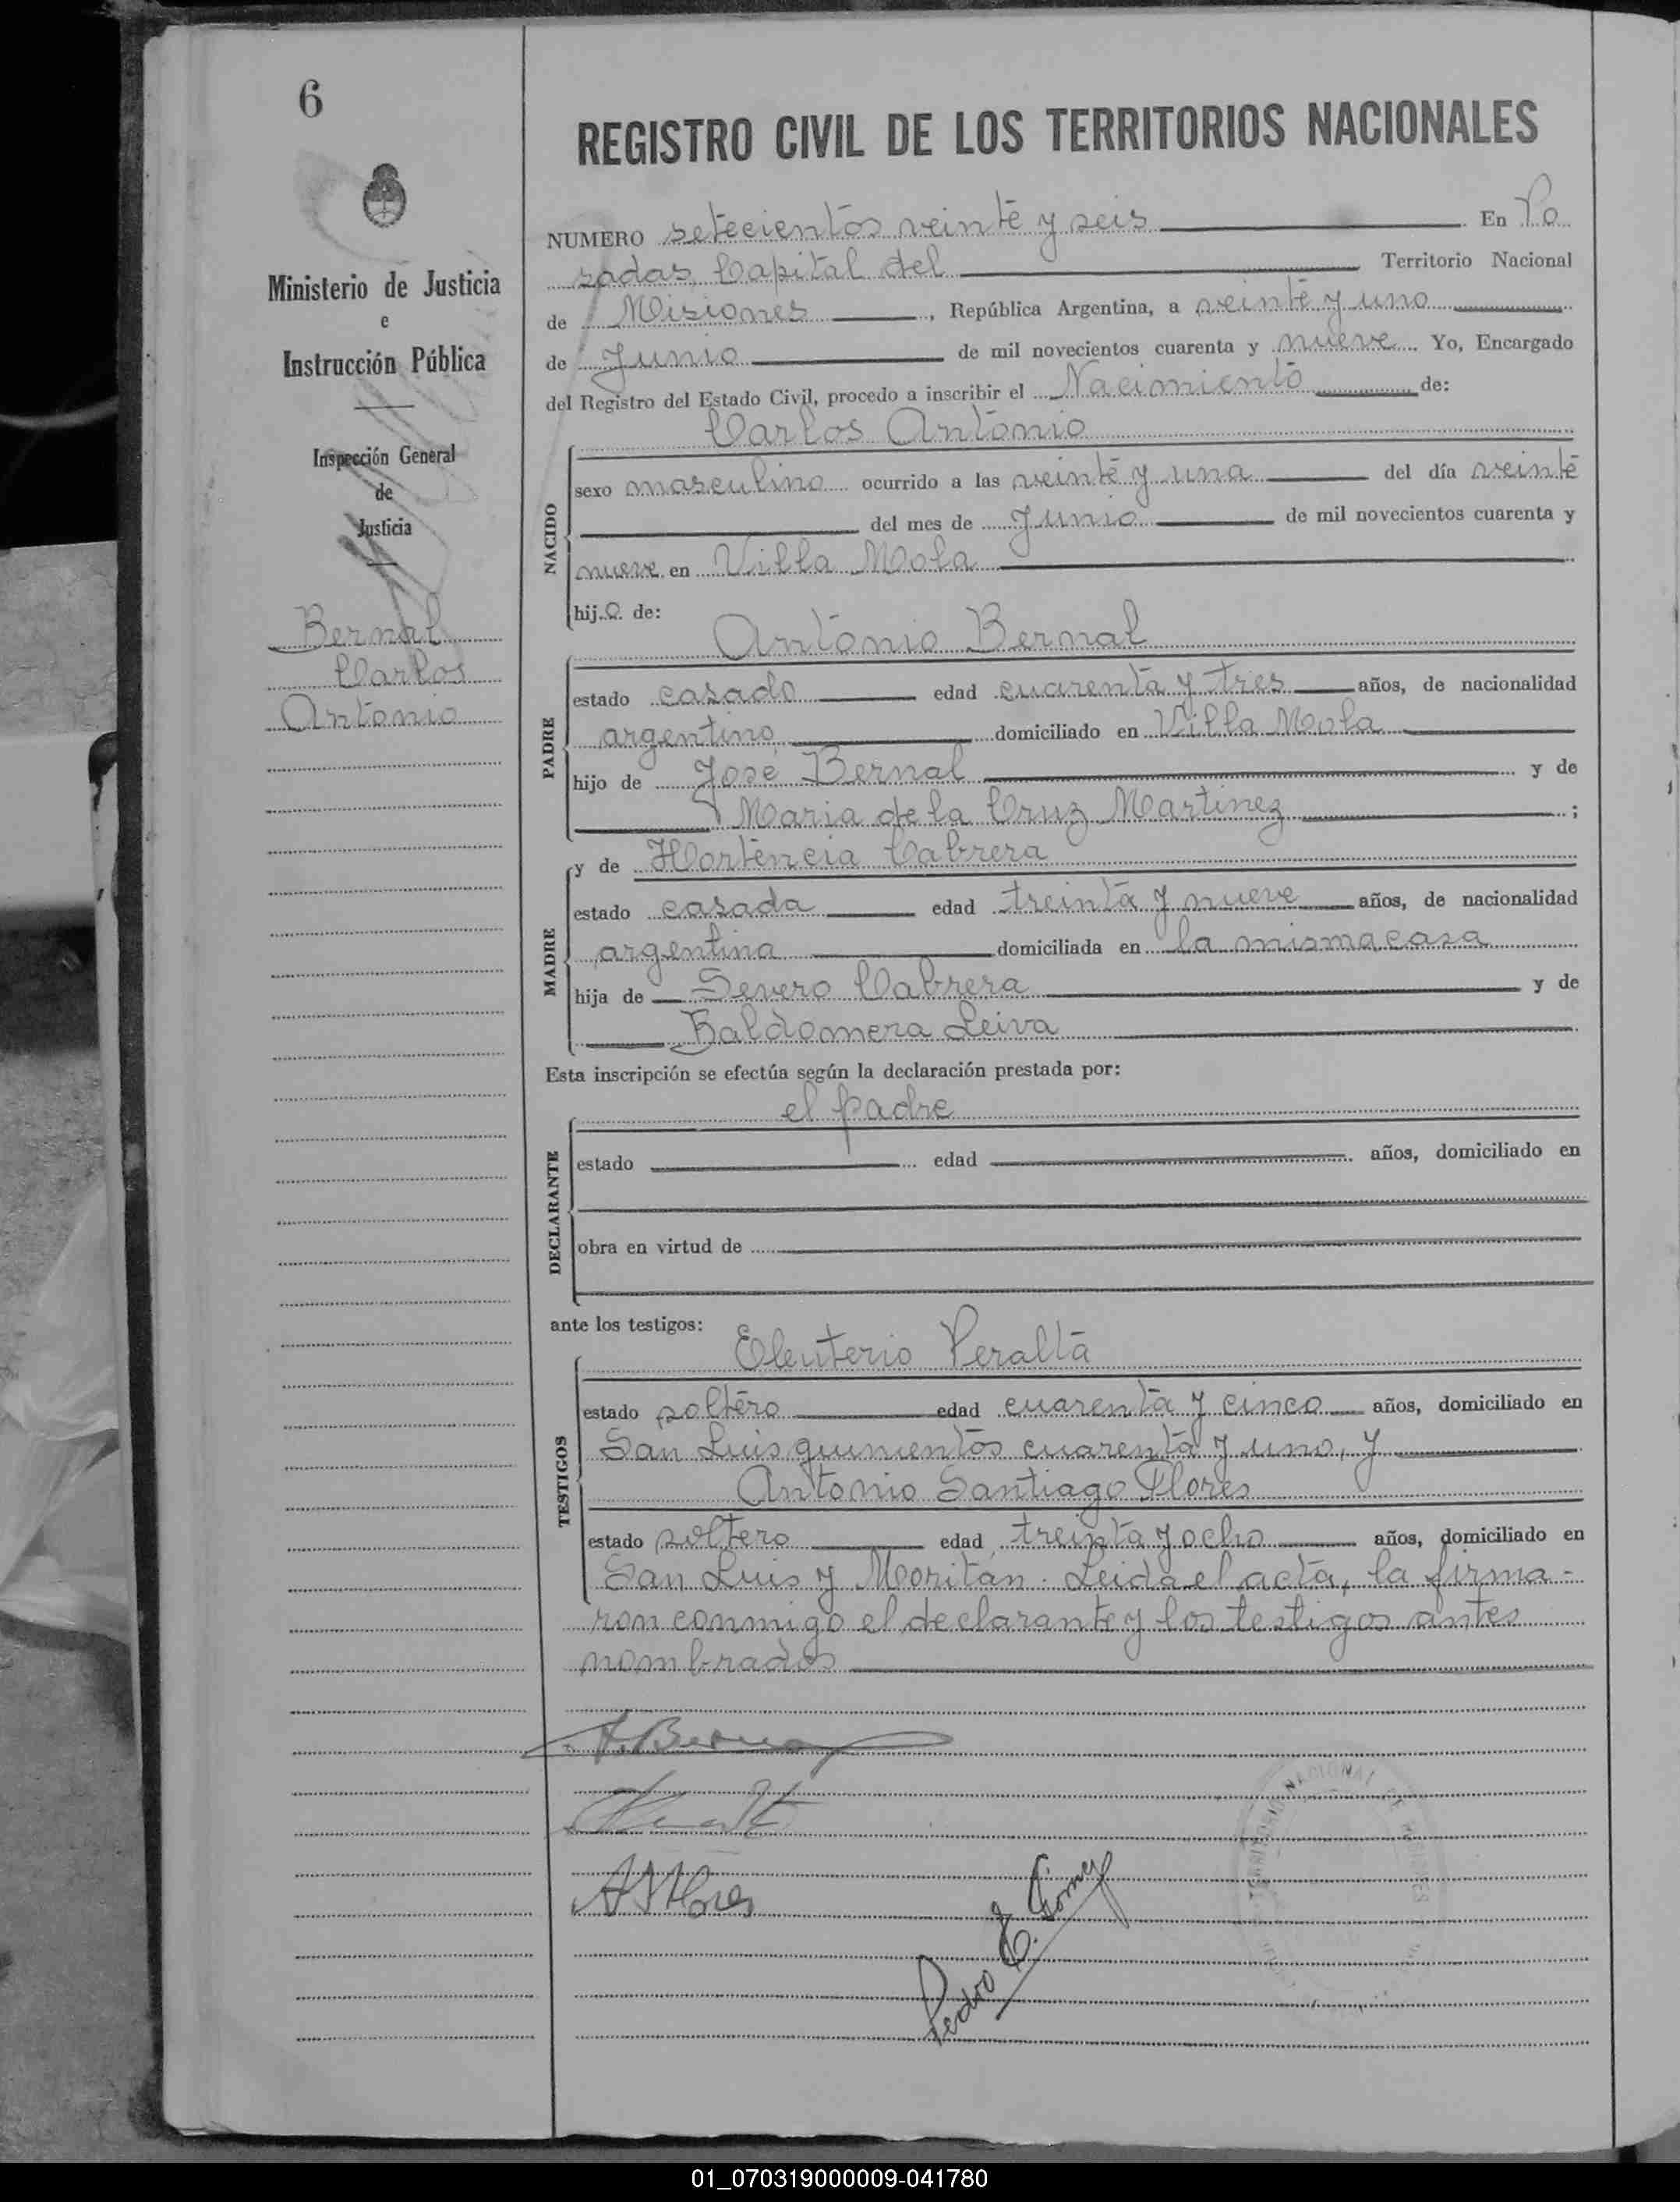 6
Ministerio de Justicia
e
Instrucción Pública
Inspección General
de
Justicia
Bernal
Carlos
Antonio
REGISTRO CIVIL DE LOS TERRITORIOS NACIONALES
NUMERO setecientos veinte y seis En Po
sadas, Capital del Territorio Nacional
de Misiones, República Argentina, a veinte y uno
de Junio de mil novecientos cuarenta y nueve. Yo, Encargado
del Registro del Estado Civil, procedo a inscribir el Nacimiento de:
Carlos Antonio
NACIDO
sexo masculino ocurrido a las veinte y una del día veinte
del mes de Junio de mil novecientos cuarenta y
nueve en Villa Mola
hijo de:
Antonio Bernal
PADRE
estado casado edad cuarenta y tres años, de nacionalidad
argentino domiciliado en Villa Mola
hijo de José Bernal y de
Maria de la Cruz Martinez;
MADRE
y de Hortencia Cabrera
estado casada edad treinta y nueve años, de nacionalidad
argentina domiciliada en la misma casa
hija de Severo Cabrera y de
Baldomera Leiva
Esta inscripción se efectúa según la declaración prestada por:
el padre
DECLARANTE
estado edad años, domiciliado en
obra en virtud de
ante los testigos:
Eleuterio Peralta
TESTIGOS
estado soltero edad cuarenta y cinco años, domiciliado en
San Luis quinientos cuarenta y uno, y
Antonio Santiago Flores
estado soltero edad treinta y ocho años, domiciliado en
San Luis y Moritán. Leida el acta, la firma-
ron conmigo el declarante y los testigos antes
nombrados
A. Bernal
A S Flores
Pedro E. Gomez
01_070319000009-041780